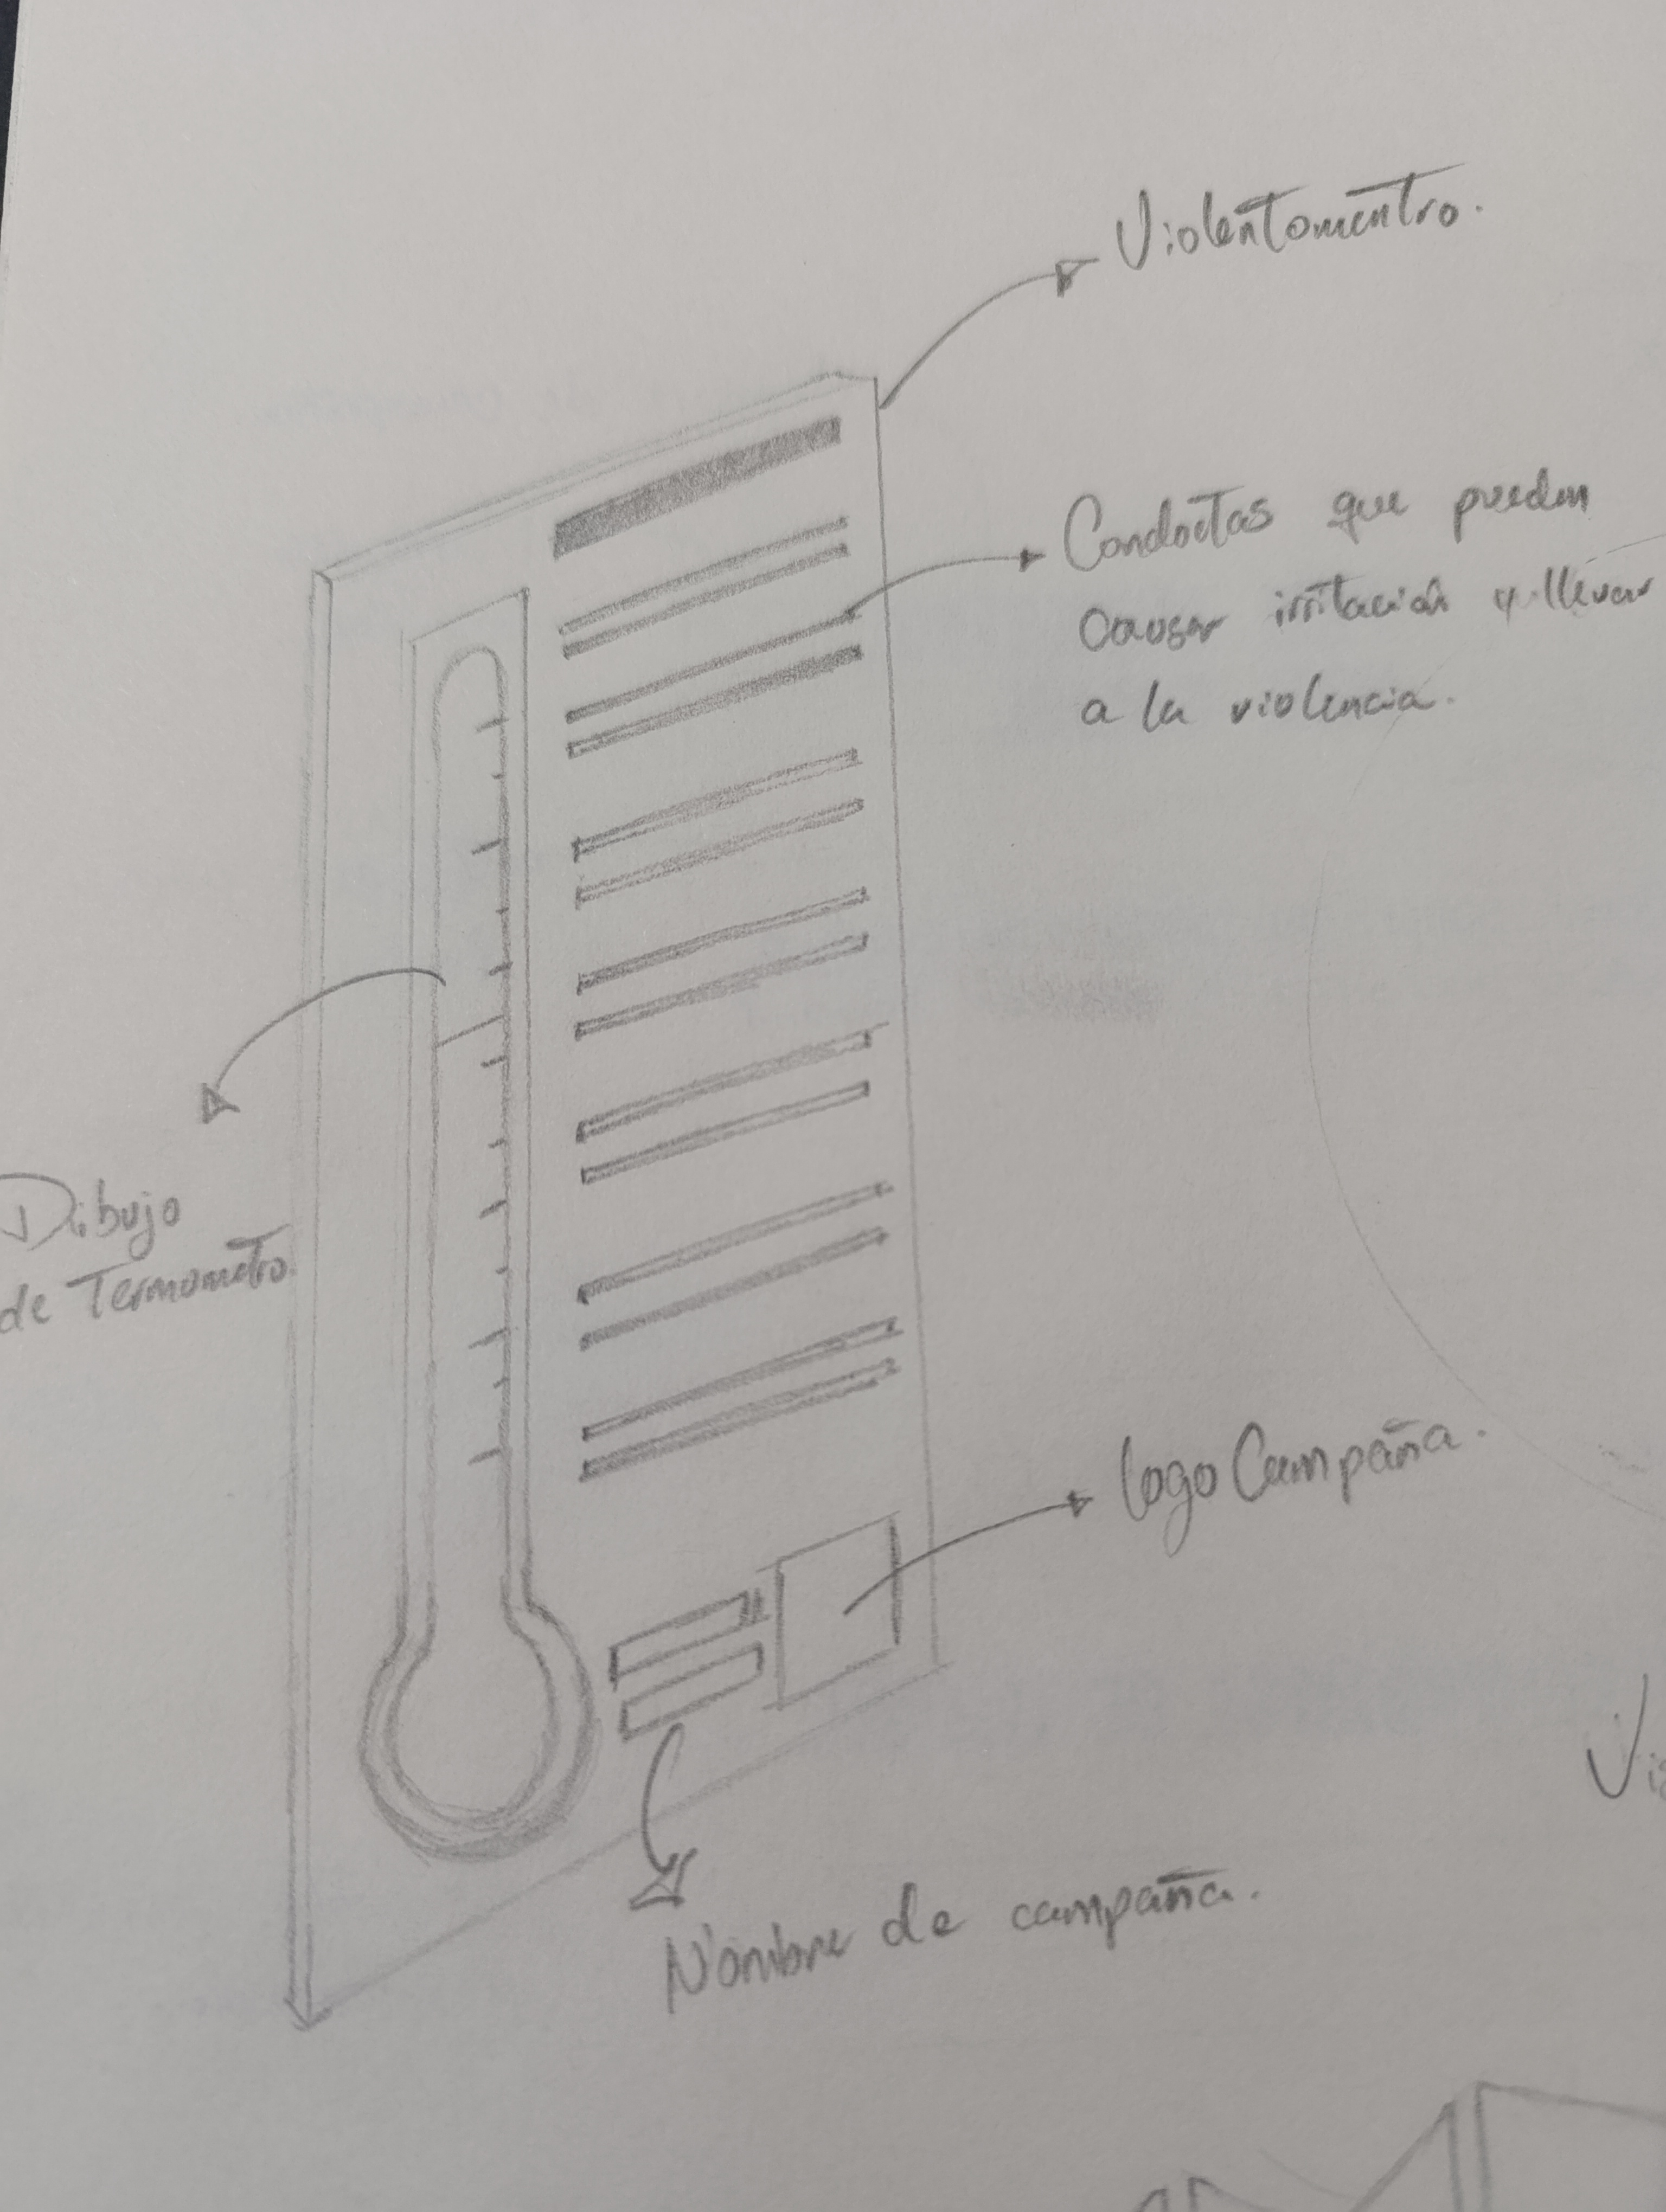 Violentomentro.
Conductas que pueden
causar irritación y llevar
a la violencia.
Dibujo
de Termometro.
logo Campaña.
Nombre de campaña.